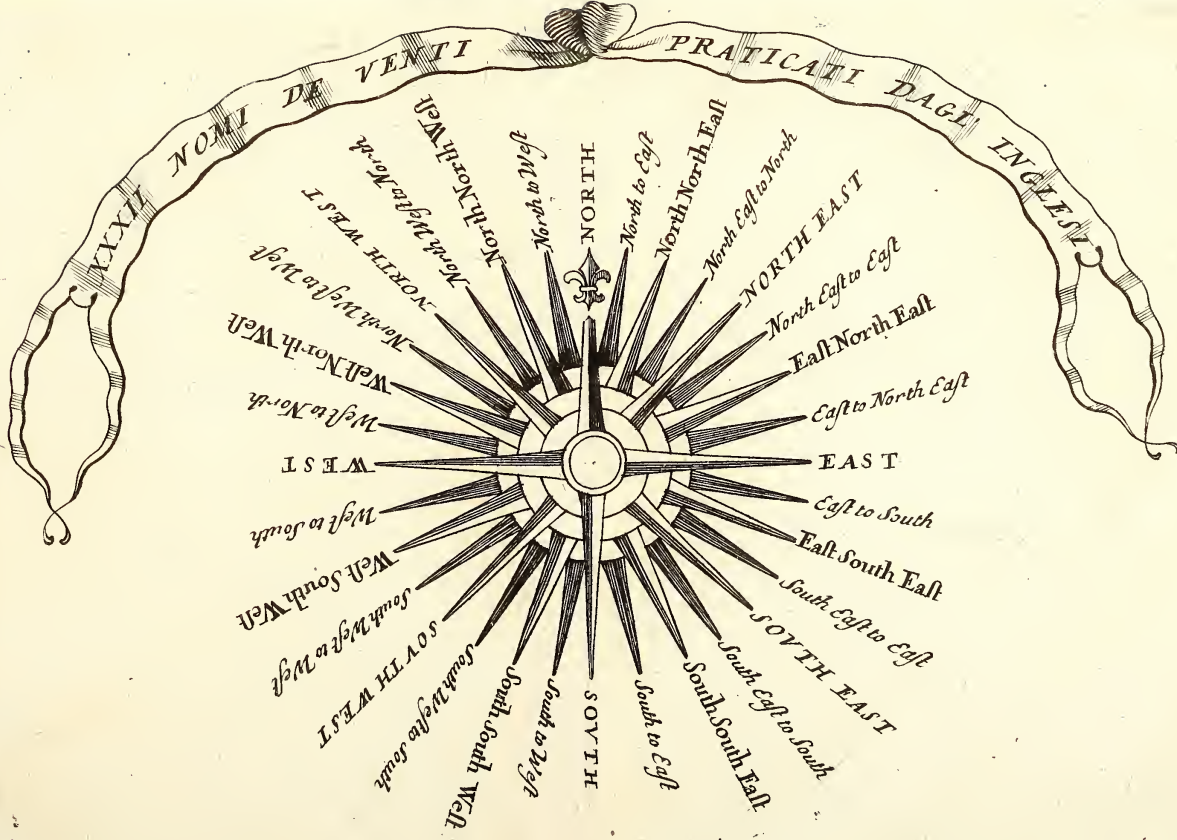 XXXII NOMI DE VENTI PRATICATI DAGL' INGLESI
NORTH
North to Eaſt
North North Eaſt
North Eaſt to North
NORTH EAST
North Eaſt to Eaſt
Eaſt North Eaſt
Eaſt to North Eaſt
EAST
Eaſt to South
Eaſt South Eaſt
South Eaſt to Eaſt
SOVTH EAST
South Eaſt to South
South South Eaſt
South to Eaſt
SOVTH
South to Weſt
South South Weſt
South Weſt to South
SOVTH WEST
South Weſt to Weſt
Weſt South Weſt
Weſt to South
WEST
Weſt to North
Weſt North Weſt
North Weſt to Weſt
NORTH WEST
North Weſt to North
North North Weſt
North to Weſt